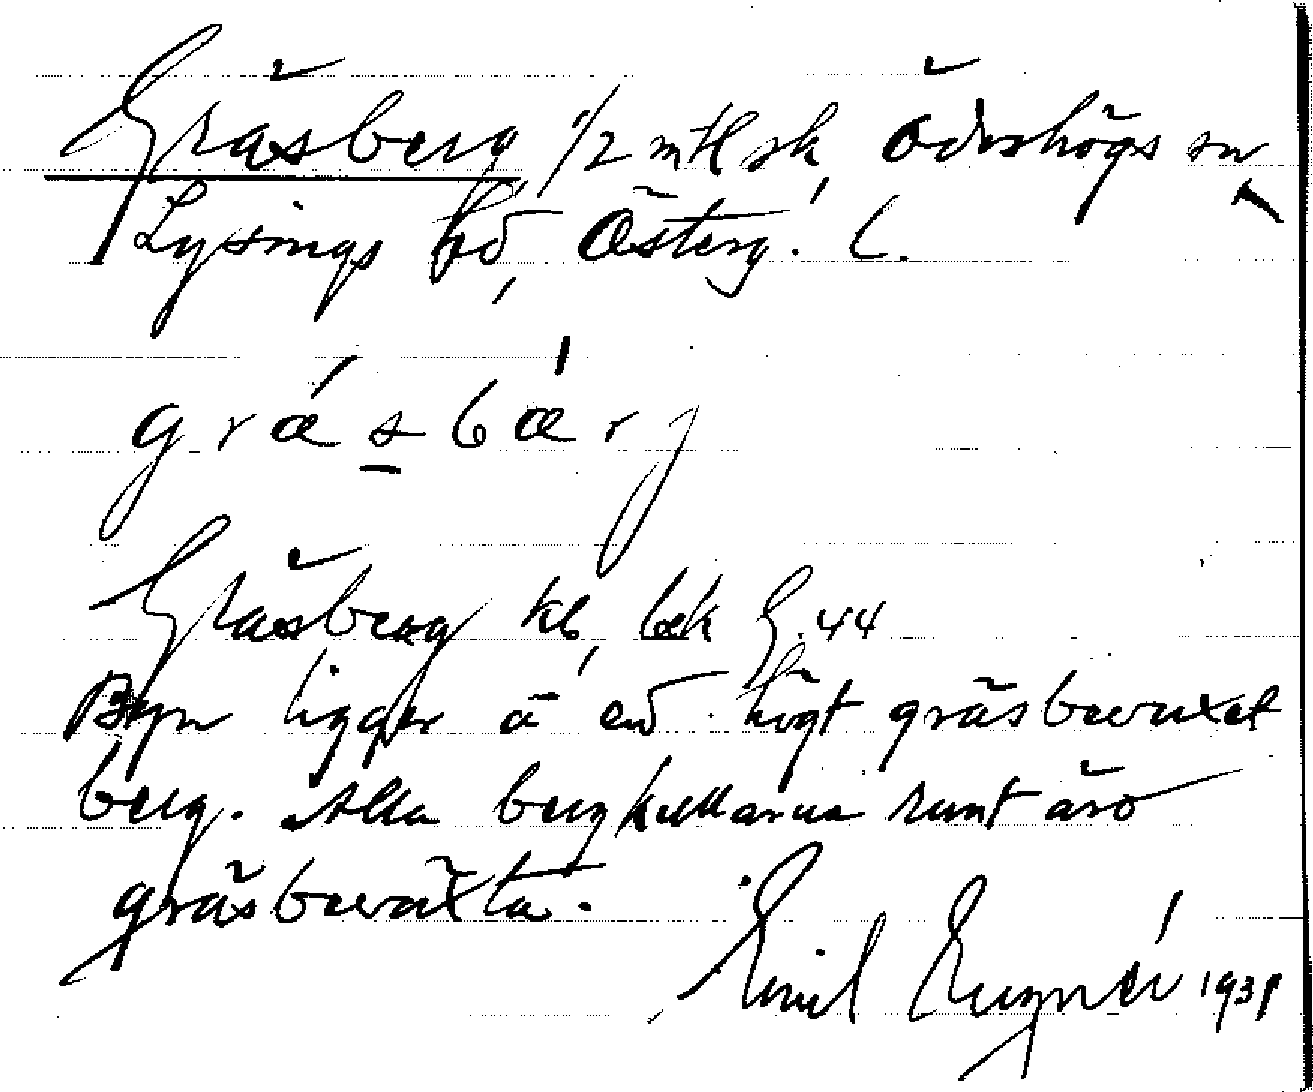 Gräsberg, 1/2 mtl sk, Ödeshögs sn
Lysings hd, Österg. l.
græ´sbæ´rj
Gräsberg kb, bek G. 44
Byn ligger å ett högt gräsbevuxet
berg. Alla bergkullarna runt äro
gräsbeväxta.
Emil 1931